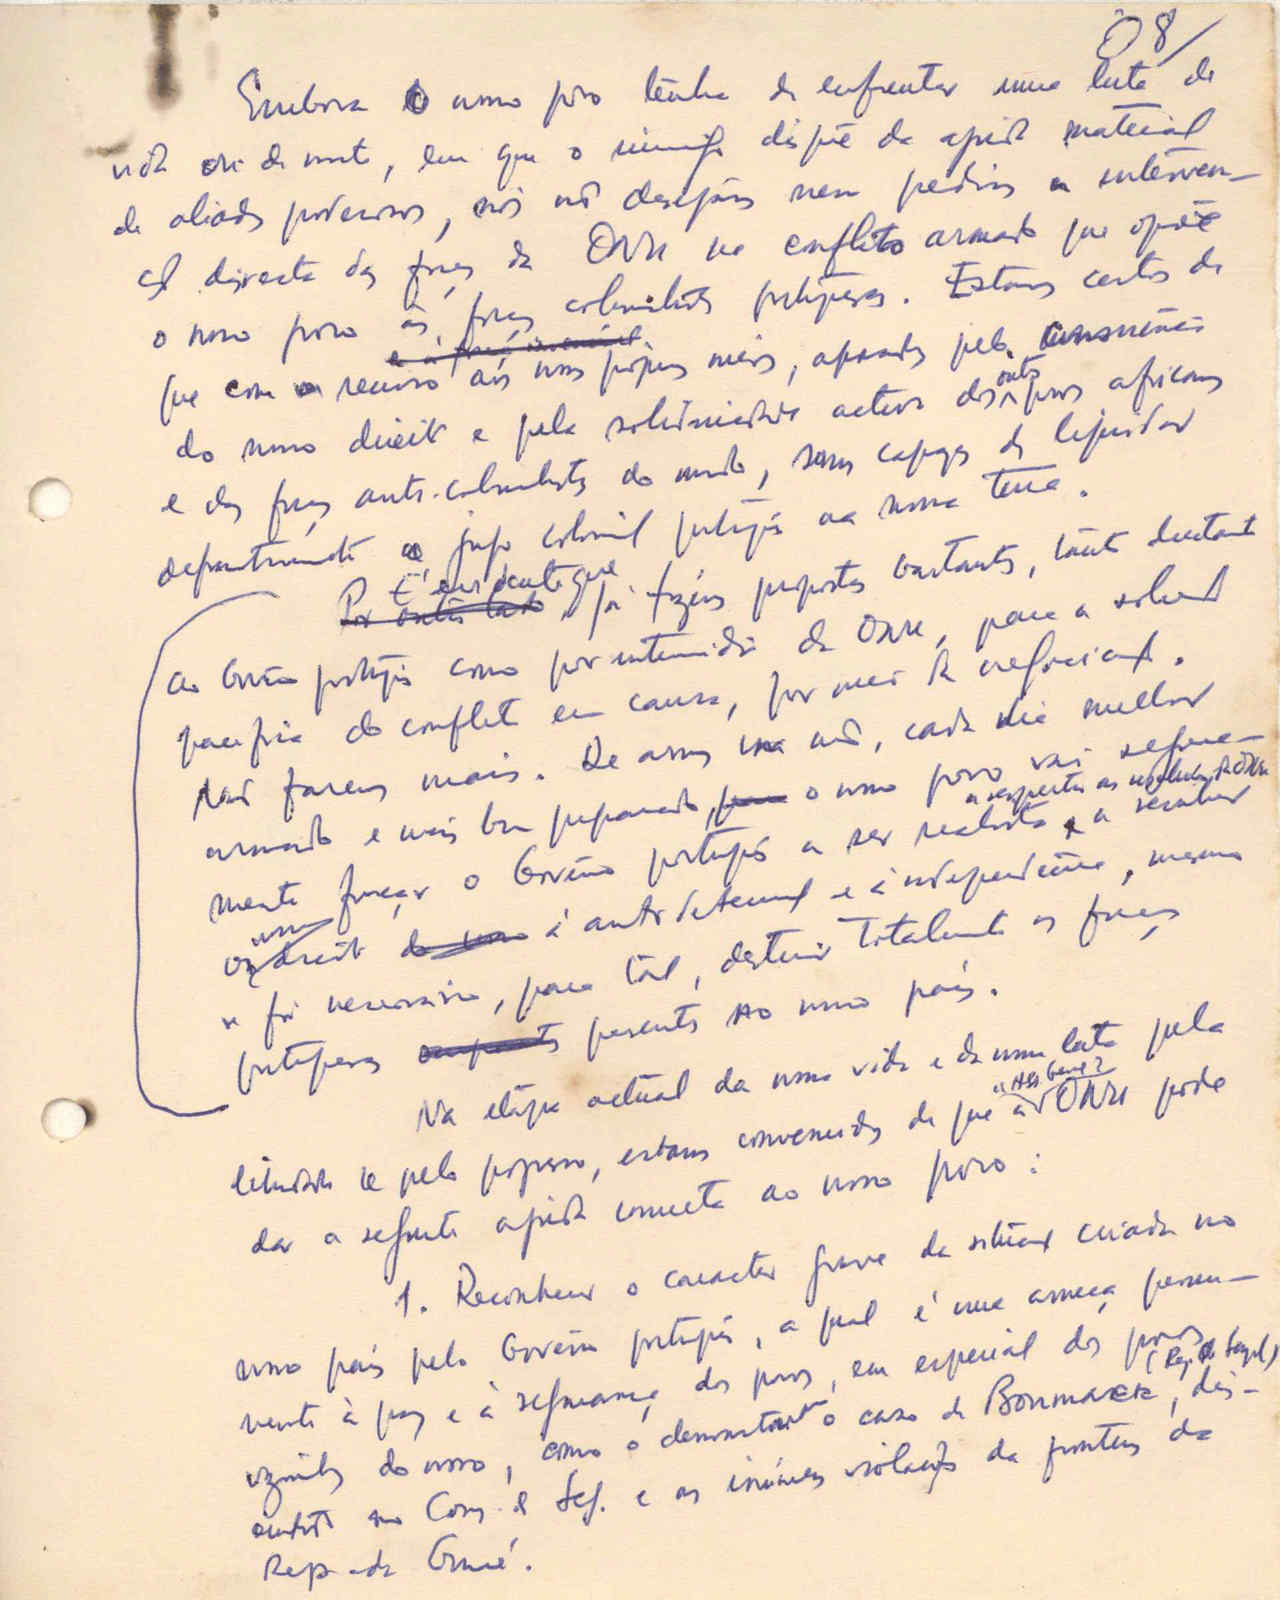 08/
Embora o nosso povo tenha de enfrentar uma luta de
vida ou de morte, em que o inimigo dispõe da ajuda material
de aliados poderosos, nós não desejamos nem pedimos a interven-
ção directa das forças da ONU no conflito armado que opõe
o nosso povo às forças colonialistas portuguesas. Estamos certos de
que com o recurso aos nossos próprios meios, apoiados pela consciência
do nosso direito e pela solidariedade activa dos outros povos africanos
e das forças anti-colonialistas do mundo, somos capazes de liquidar
definitivamente o jugo colonial português na nossa terra.
Por outro lado É evidente que já fizemos propostas bastantes, tanto directamente
ao Govêrno português como por intermédio da ONU, para a solução
pacífica do conflito em causa, por meio de negociações.
Não faremos mais. De armas na mão, cada dia melhor
armado e mais bem preparado, o nosso povo vai segura-
mente forçar o Govêrno português a ser realista, a respeitar as resoluções da ONU a reconhecer
o nosso direito à autodeterminação e à independência, mesmo
se fôr necessário, para tal, destruir totalmente as forças
portuguesas presentes no nosso país.
Na etapa actual da nossa vida e da nossa luta pela
liberdade e pelo progresso, estamos convencidos de que a ONU pode
dar a seguinte ajuda concreta ao nosso povo:
1. Reconhecer o caracter grave da situação criada no
nosso país pelo Govêrno português, a qual é uma ameaça perma-
nente à paz e à segurança dos povos, em especial dos povos
vizinhos do nosso, como o demonstrou o caso de BOUNIAK (Rep. do Senegal), dis-
cutido no Cons. de Seg. e as inúmeras violações da fronteira da
Rep. da Guiné.